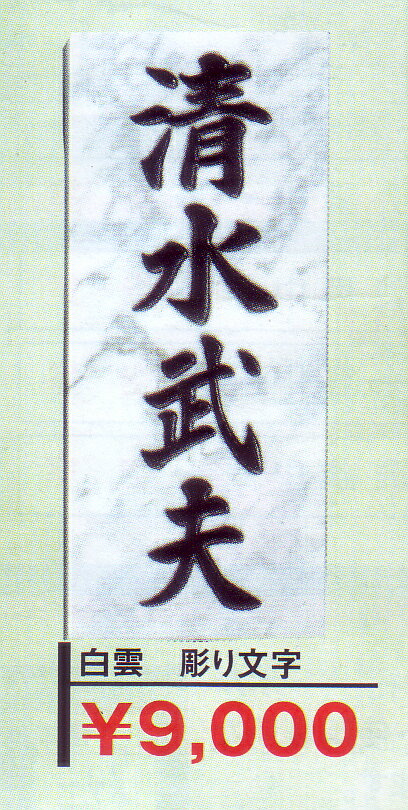 清水武夫
白雲　彫り文字
¥9,000